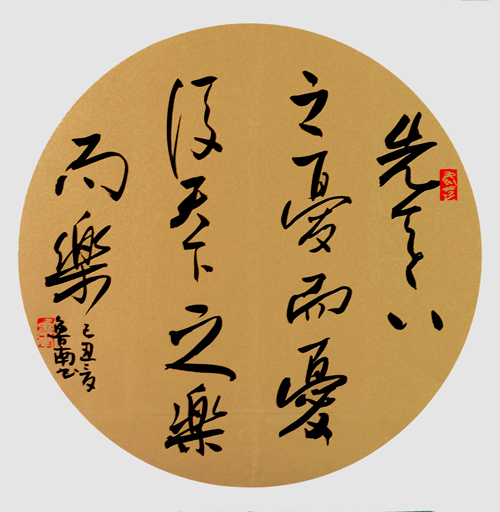 先天下
之憂而憂
後天下之樂
而樂
己丑夏
魯南书